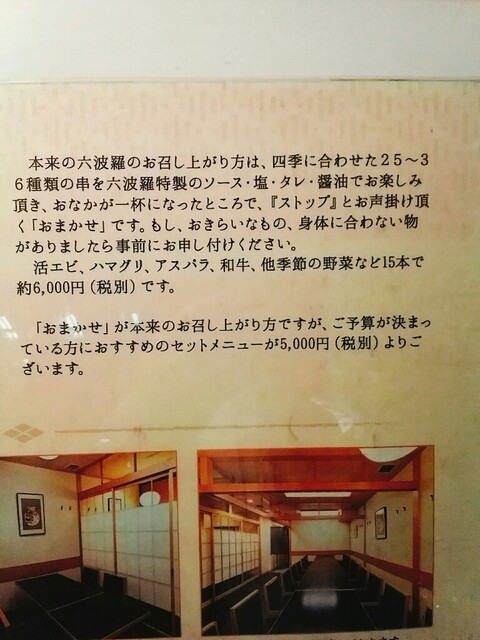 本来の六波羅のお召し上がり方は、四季に合わせた25〜3
6種類の串を六波羅特製のソース・塩・タレ・醤油でお楽しみ
頂き、おなかが一杯になったところで、『ストップ』とお声掛け頂
く「おまかせ」です。もし、おきらいなもの、身体に合わない物
がありましたら事前にお申し付けください。
活エビ、ハマグリ、アスパラ、和牛、他季節の野菜など15本で
約6,000円(税別)です。
「おまかせ」が本来のお召し上がり方ですが、ご予算が決まっ
ている方におすすめのセットメニューが5,000円(税別)よりご
ざいます。